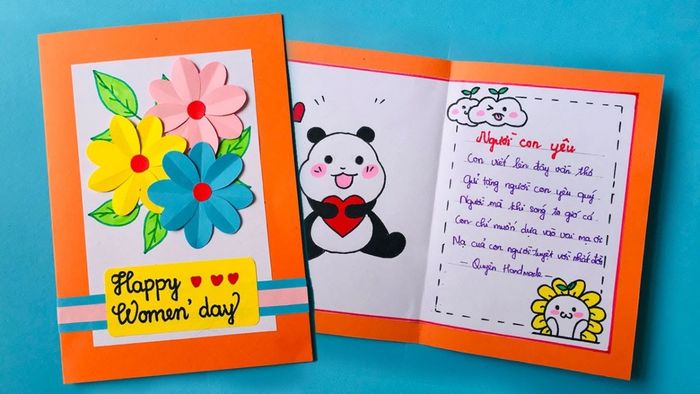 Happy
Women' day
Người con yêu
Con viết lên đây vần thơ
Gửi tặng người con yêu quý
Người mà khi sóng to gió cả
Con chỉ muốn dựa vào vai mạ ơi
Mạ của con người tuyệt vời nhất đời
- Quyên Handmade -